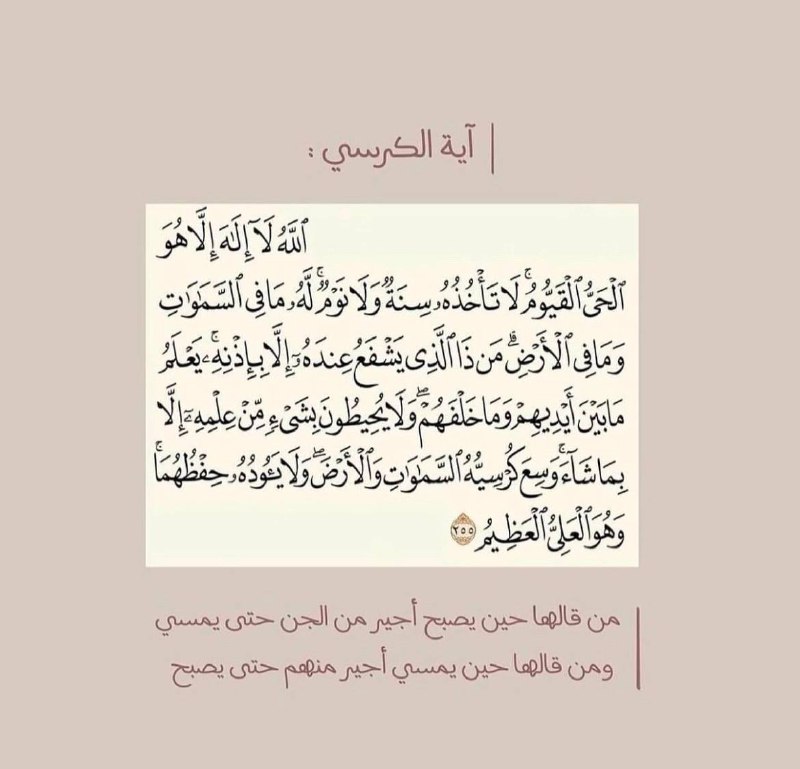 آية الكرسي :
ٱللَّهُ لَآ إِلَٰهَ إِلَّا هُوَ
ٱلْحَىُّ ٱلْقَيُّومُ ۚ لَا تَأْخُذُهُۥ سِنَةٌ وَلَا نَوْمٌ ۚ لَّهُۥ مَا فِى ٱلسَّمَٰوَٰتِ
وَمَا فِى ٱلْأَرْضِ ۗ مَن ذَا ٱلَّذِى يَشْفَعُ عِندَهُۥٓ إِلَّا بِإِذْنِهِۦ ۚ يَعْلَمُ
مَا بَيْنَ أَيْدِيهِمْ وَمَا خَلْفَهُمْ ۖ وَلَا يُحِيطُونَ بِشَىْءٍ مِّنْ عِلْمِهِۦٓ إِلَّا
بِمَا شَآءَ ۚ وَسِعَ كُرْسِيُّهُ ٱلسَّمَٰوَٰتِ وَٱلْأَرْضَ ۖ وَلَا يَـُٔودُهُۥ حِفْظُهُمَا ۚ
وَهُوَ ٱلْعَلِىُّ ٱلْعَظِيمُ ٢٥٥
من قالها حين يصبح أجير من الجن حتى يمسي
ومن قالها حين يمسي أجير منهم حتى يصبح